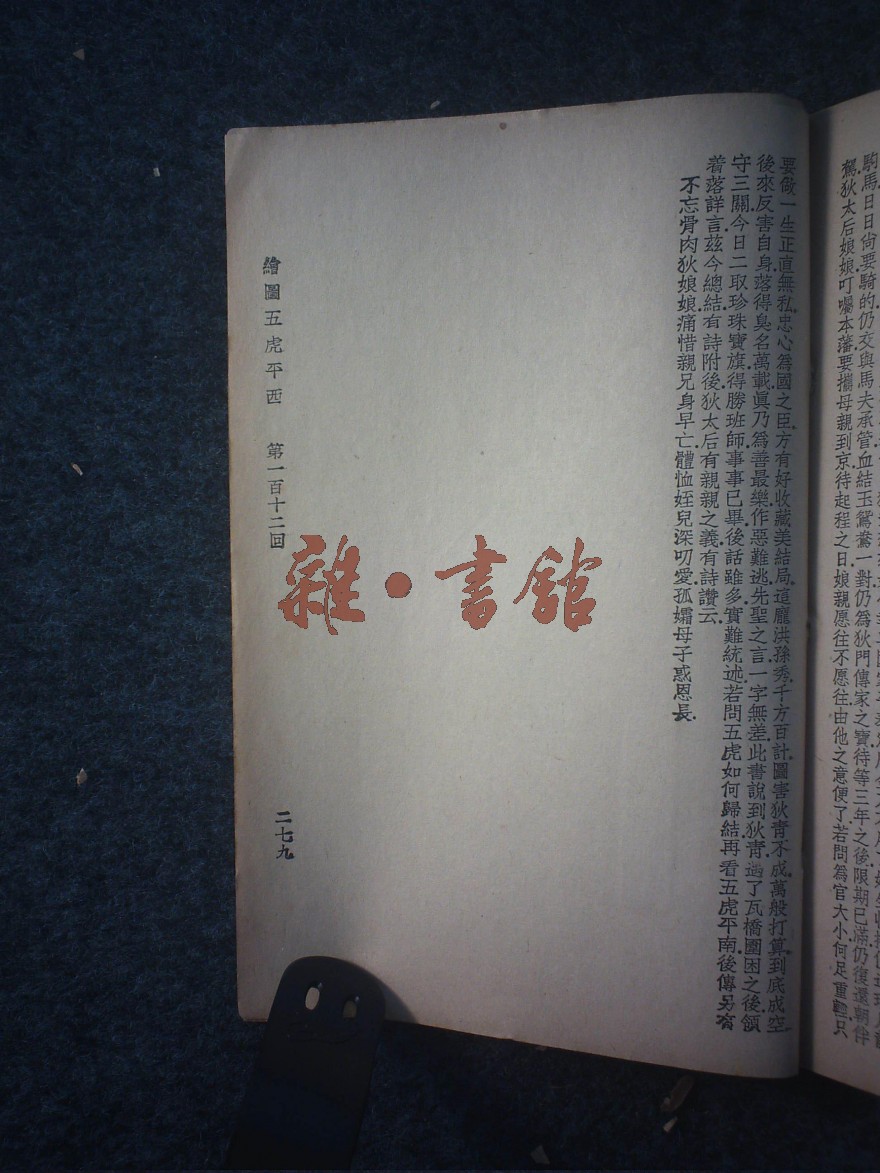 駒馬日日尚要騎的仍交與馬夫承管血結玉鴛鴦一對仍爲狄門傳家之寶待等三年之後限期已滿仍復還朝伴
駕狄太后娘娘叮囑本藩要攜母親到京待起程之日娘親愿往不愿往由他之意便了若問爲官大小何足重輕只
要做一生正直無私忠心爲國之臣方有好收藏美結局這龐洪孫秀千方百計圖害狄青不成萬般打算到底成空
後來反害自身落得臭名萬載眞乃爲善最樂作惡難逃先聖之言一字無差此書說到狄青過了瓦橋圍困之後領
守三關今日二取珍珠寶旗得勝班師事事已畢後話雖多實難統述若問五虎如何歸結再看五虎平南後傳另有
着落詳言茲今總結有詩附後狄太后有親親之義有詩讚云
不忘骨肉狄娘娘痛惜親兄身早亡體恤姪兒深叨愛孤孀母子惑恩長
繪圖五虎平西 第一百十二回
二七九
雜·書館